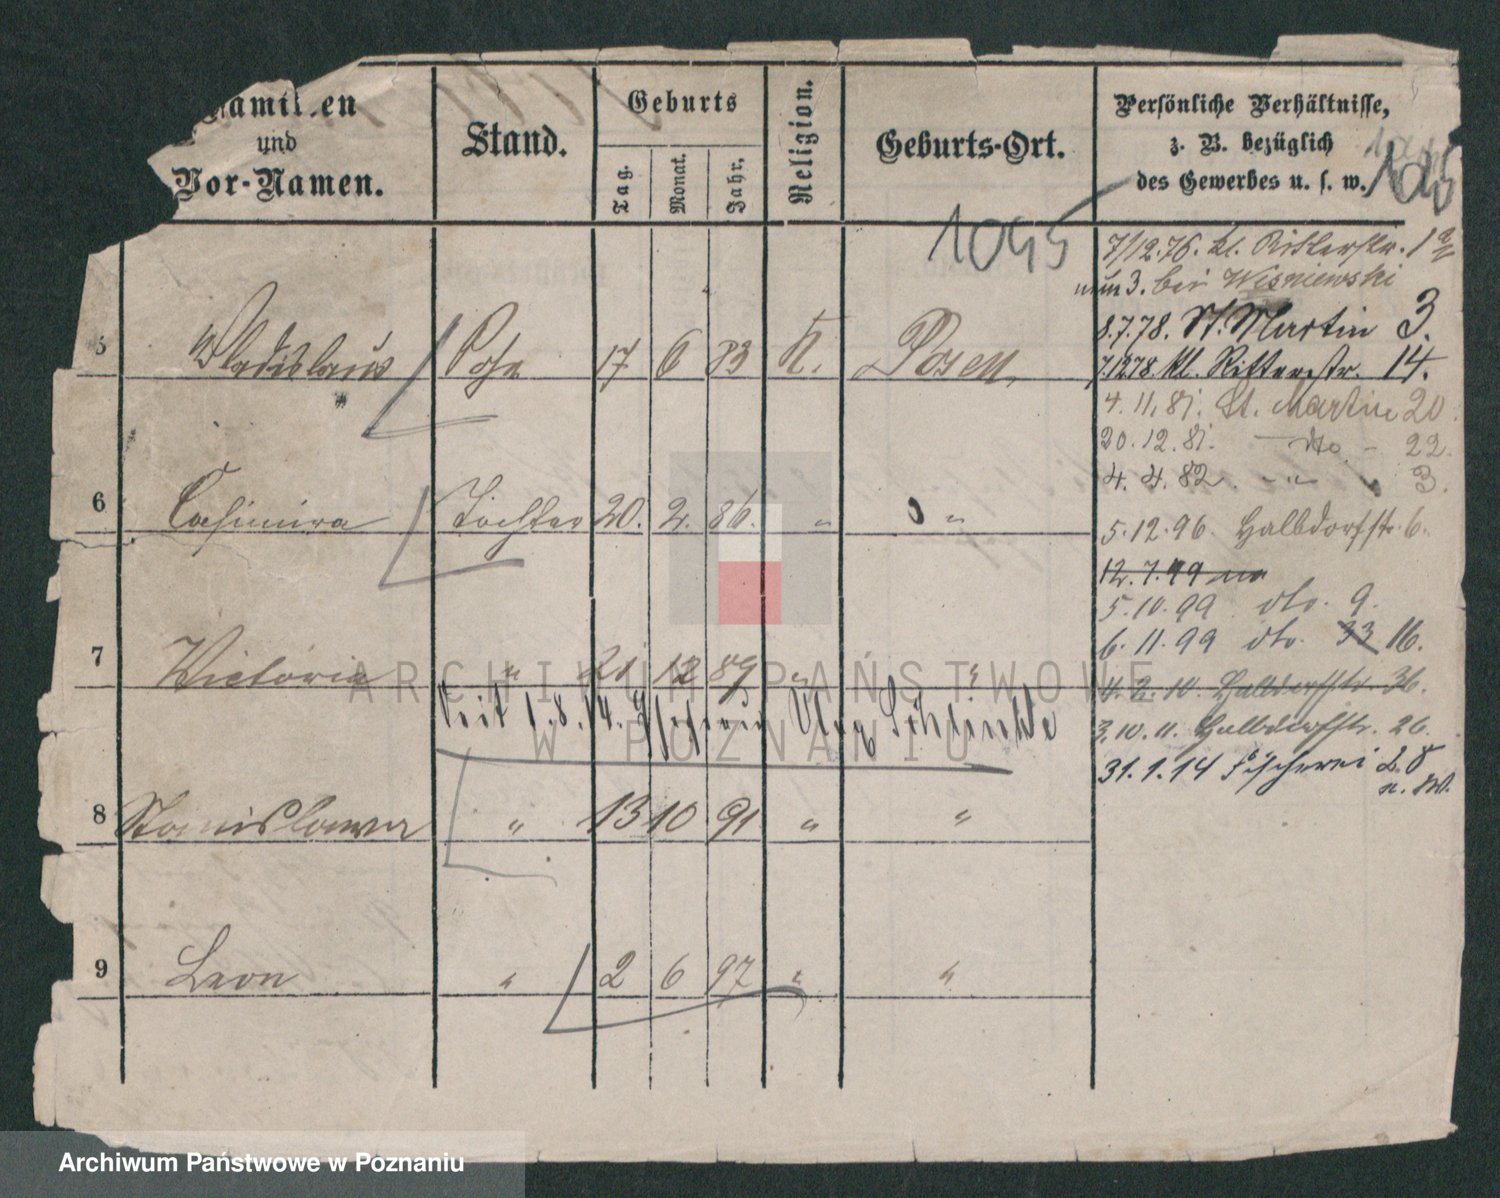 Familien
und
Vor-Namen.
Stand.
Geburts
Tag.
Monat.
Jahr.
Religion.
Geburts-Ort.
Persönliche Verhältnisse,
z. B. bezüglich
des Gewerbes u. s. w.
1045
7/12.76. kl. Ritterstr. 1
3. bei Wisniewski
8.7.78. St. Martin 3.
7.12.78 kl. Ritterstr. 14.
4.11.81. St. Martin 20.
20.12.81. — do — 22.
4.4.82. " " 3.
5.12.96. Halbdorfstr. 6.
12.7.99
5.10.99 dto. 9.
6.11.99 dto. 33 16.
4.2.10. Halbdorfstr. 36.
3.10.11. Halbdorfstr. 26.
31.1.14 Fischerei
5 Wladislaus Sohn 17 6 83 K. Posen
6 Casimira Tochter 20. 2. 86. " "
7 Victoria " 21 12 89 " "
seit 1.8.14.
8 Stanislawa " 13 10 91 " "
9 Leon " 2 6 97 " "
ARCHIWUM PAŃSTWOWE
W POZNANIU
Archiwum Państwowe w Poznaniu